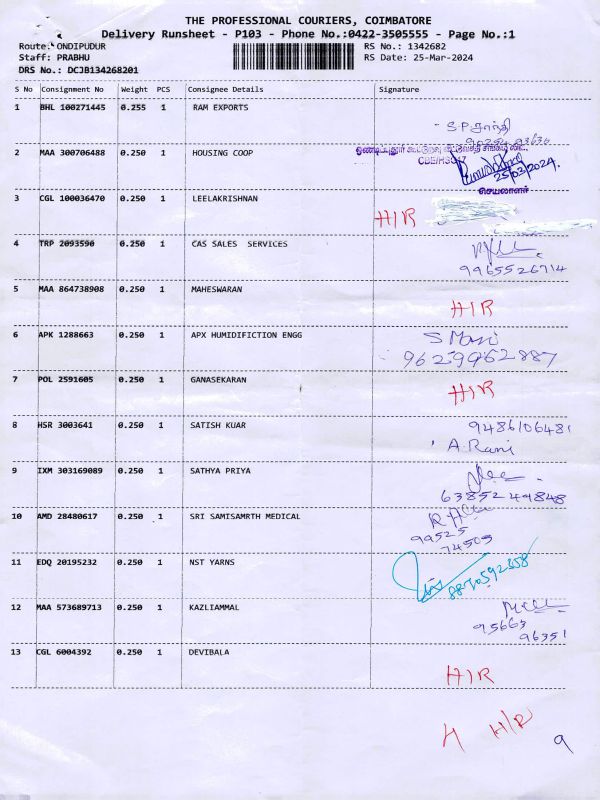 THE PROFESSIONAL COURIERS, COIMBATORE
Delivery Runsheet - P103 - Phone No.:0422-3505555 - Page No.:1
Route: ONDIPUDUR RS No.: 1342682
Staff: PRABHU RS Date: 25-Mar-2024
DRS No.: DCJB134268201
S No Consignment No Weight PCS Consignee Details Signature
1 BHL 100271445 0.255 1 RAM EXPORTS
S.P சாந்தி
2 MAA 300706488 0.250 1 HOUSING COOP
25/03/2024.
செயலாளர்
3 CGL 100036470 0.250 1 LEELAKRISHNAN
H/R
4 TRP 2093596 0.250 1 CAS SALES SERVICES
9965526714
5 MAA 864738908 0.250 1 MAHESWARAN
H/R
6 APK 1288663 0.250 1 APX HUMIDIFICTION ENGG
S Mani
9629962887
7 POL 2591605 0.250 1 GANASEKARAN
H/R
8 HSR 3003641 0.250 1 SATISH KUAR
9486106481
A. Rani
9 IXM 303169089 0.250 1 SATHYA PRIYA
6385244848
10 AMD 28480617 0.250 1 SRI SAMISAMRTH MEDICAL
99525
74505
11 EDQ 20195232 0.250 1 NST YARNS
8870592858
12 MAA 573689713 0.250 1 KAZLIAMMAL
95663
96351
13 CGL 6004392 0.250 1 DEVIBALA
H/R
4 H/R
9